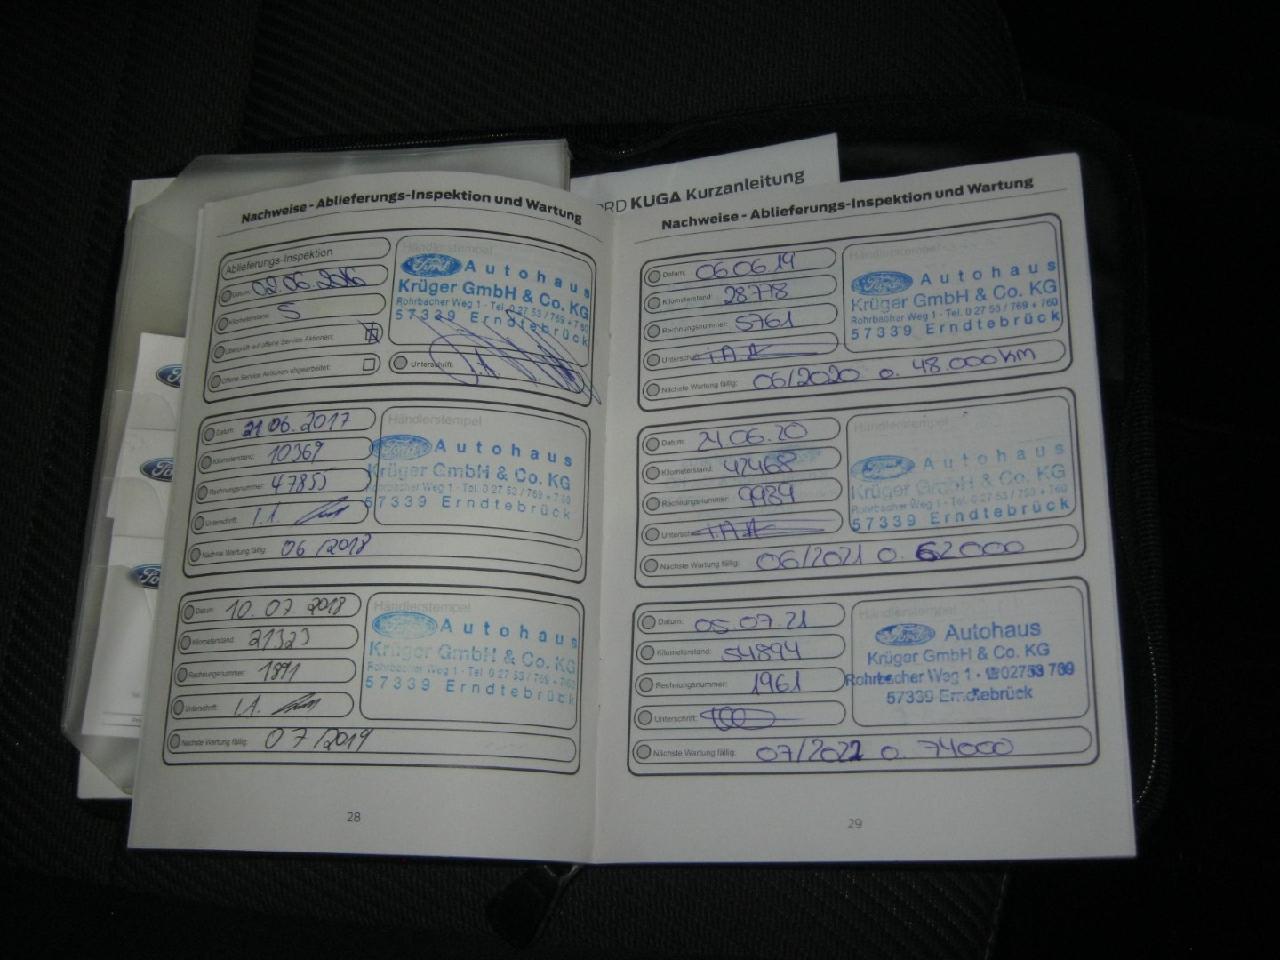 FORD KUGA Kurzanleitung
Nachweise - Ablieferungs-Inspektion und Wartung
Ablieferungs-Inspektion
Händlerstempel
Datum: 02.06.2016
Kilometerstand: 5
Überprüft auf offene Service Aktionen:
Offene Service Aktionen abgearbeitet:
Unterschrift:
Ford Autohaus
Krüger GmbH & Co. KG
Rohrbacher Weg 1 - Tel. 0 27 53 / 769 + 760
57339 Erndtebrück
Händlerstempel
Datum: 21.06.2017
Kilometerstand: 10369
Rechnungsnummer: 47855
Unterschrift: I.A.
Nächste Wartung fällig: 06/2018
Ford Autohaus
Krüger GmbH & Co. KG
Rohrbacher Weg 1 - Tel. 0 27 53 / 769 + 760
57339 Erndtebrück
Händlerstempel
Datum: 10.07.2018
Kilometerstand: 21323
Rechnungsnummer: 1891
Unterschrift: I.A.
Nächste Wartung fällig: 07/2019
Ford Autohaus
Krüger GmbH & Co. KG
Rohrbacher Weg 1 - Tel. 0 27 53 / 769 + 760
57339 Erndtebrück
28
Nachweise - Ablieferungs-Inspektion und Wartung
Händlerstempel
Datum: 06.06.19
Kilometerstand: 28778
Rechnungsnummer: 5761
Unterschrift: i.A.
Nächste Wartung fällig: 06/2020 o. 48.000km
Ford Autohaus
Krüger GmbH & Co. KG
Rohrbacher Weg 1 - Tel. 0 27 53 / 769 + 760
57339 Erndtebrück
Händlerstempel
Datum: 24.06.20
Kilometerstand: 42468
Rechnungsnummer: 9984
Unterschrift: i.A.
Nächste Wartung fällig: 06/2021 o. 62000
Ford Autohaus
Krüger GmbH & Co. KG
Rohrbacher Weg 1 - Tel. 0 27 53 / 769 + 760
57339 Erndtebrück
Händlerstempel
Datum: 05.07.21
Kilometerstand: 54894
Rechnungsnummer: 1961
Unterschrift:
Nächste Wartung fällig: 07/2022 o. 74000
Ford Autohaus
Krüger GmbH & Co. KG
Rohrbacher Weg 1 - ☎ 02753 769
57339 Erndtebrück
29